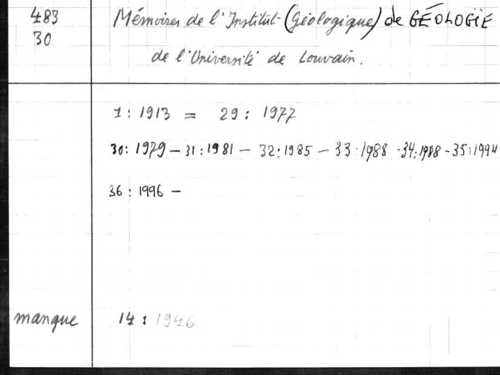 483
30
Mémoires de l'Institut (Géologique) de GÉOLOGIE
de l'Université de Louvain.
1 : 1913 = 29 : 1977
30 : 1979 – 31 : 1981 – 32 : 1985 – 33 : 1988 - 34 : 1988 - 35 : 1994
36 : 1996 –
manque 14 : 1946